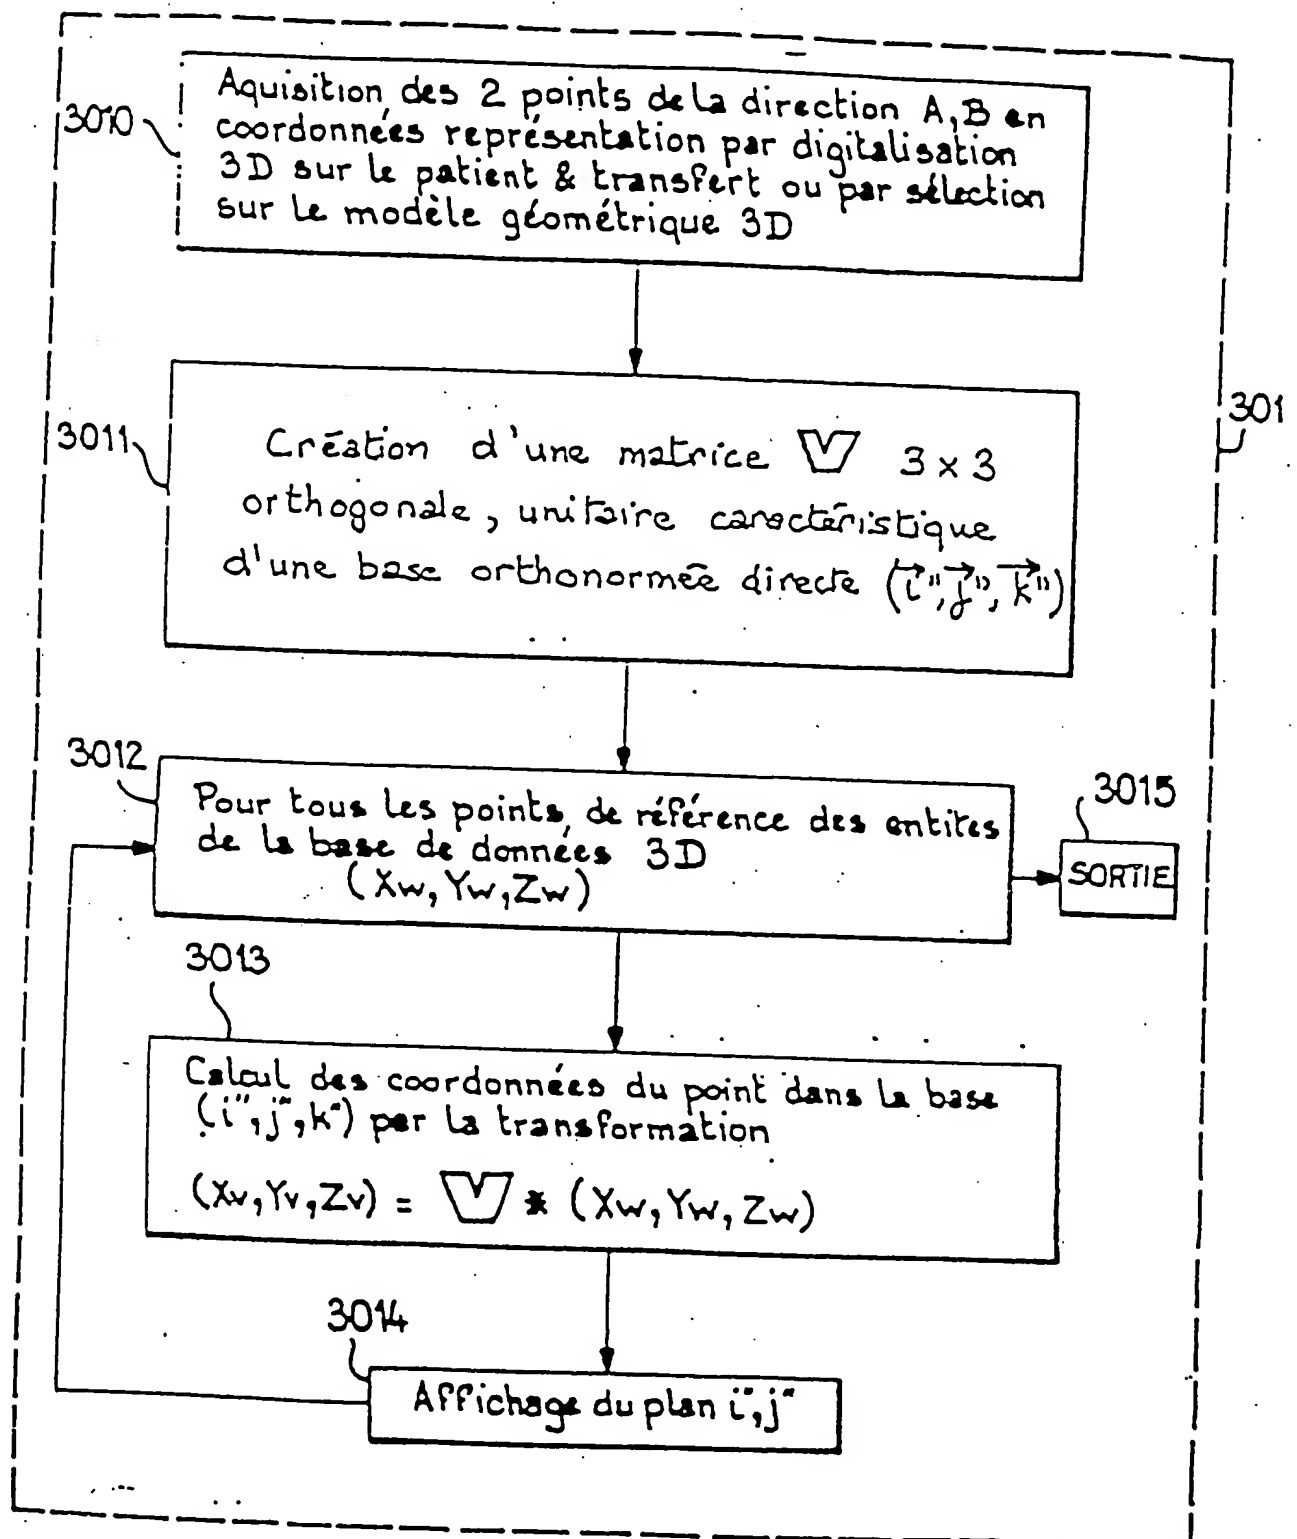 3010
Aquisition des 2 points de la direction A,B en
coordonnées représentation par digitalisation
3D sur le patient & transfert ou par sélection
sur le modèle géométrique 3D
301
3011
Création d'une matrice V 3 x 3
orthogonale, unitaire caractéristique
d'une base orthonormée directe (i", j", k")
3012
Pour tous les points, de référence des entites
de la base de données 3D
(Xw, Yw, Zw)
3015
SORTIE
3013
Calcul des coordonnées du point dans la base
(i", j", k") per la transformation
(Xv, Yv, Zv) = V * (Xw, Yw, Zw)
3014
Affichage du plan i", j"